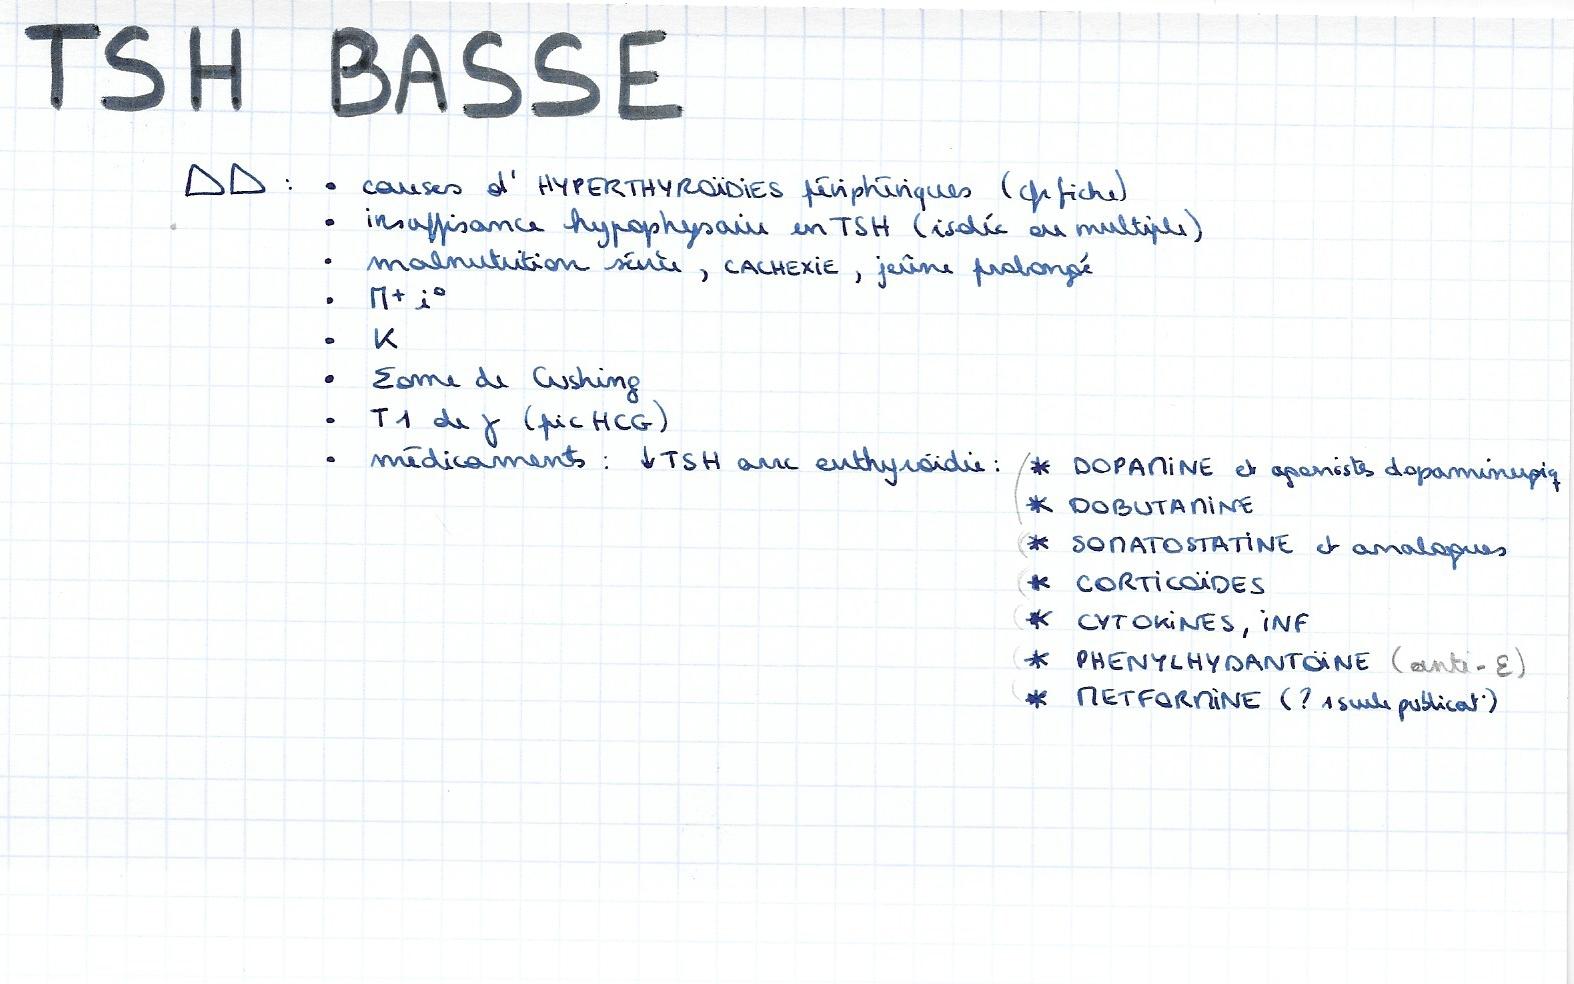 TSH BASSE
DD : • causes d' HYPERTHYROÏDIES périphériques (cfr fiche)
• insuffisance hypophysaire en TSH (isolée ou multiple)
• malnutrition sévère, CACHEXIE, jeûne prolongé
• Π+ i°
• K
• Σome de Cushing
• T1 de γ (pic HCG)
• médicaments : ↓TSH avec euthyroïdie : * DOPAMINE et agonistes dopaminergiq
* DOBUTAMINE
* SOMATOSTATINE et analogues
* CORTICOÏDES
* CYTOKINES, INF
* PHENYLHYDANTOÏNE (anti-Ɛ)
* METFORMINE (? 1 seule publicat°)